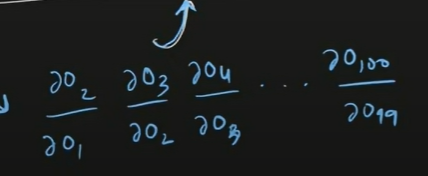 ∂O₂/∂O₁ ∂O₃/∂O₂ ∂O₄/∂O₃ ... ∂O₁₀₀/∂O₉₉